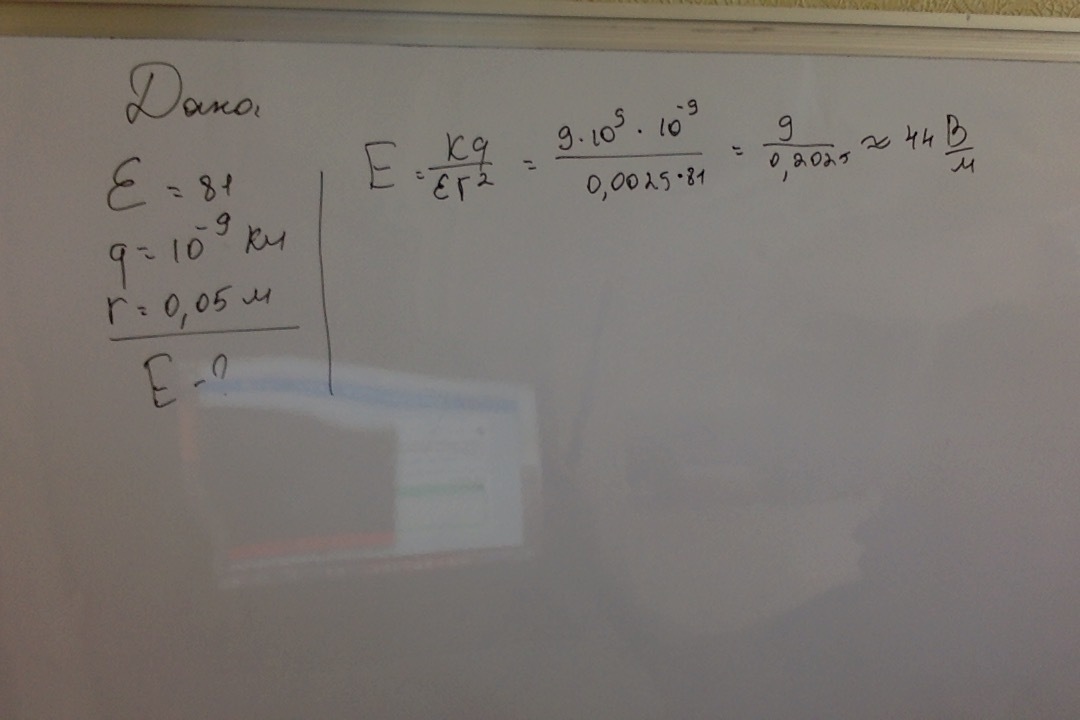 Дано:
Ɛ = 81
q = 10⁻⁹ Кл
r = 0,05 м
E - ?
E = Kq/Ɛr² = 9·10⁹·10⁻⁹/0,0025·81 = 9/0,2025 ≈ 44 В/м